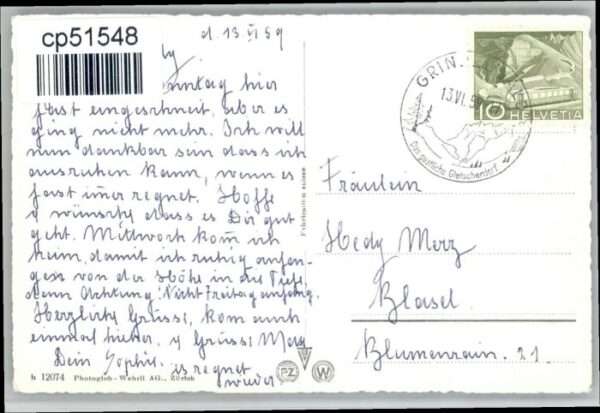 cp51548
d. 13 VI 59
hier
fast eingeschneit, aber es
ging nicht mehr. Ich will
nun dankbar sein dass ich
ausruhen kann, wenn es
fast imer regnet. Hoffe
y wünsche dass es Dir gut
geht. Mittwoch kom̄ ich
heim, damit ich ruhig anfan-
gen von der Höhe in die Tiefe,
denn Achtung! Nicht Freitag anfang.
Herzlichi Grüssi, kom auch
einmal hieher. y Grüssi
Dein Sophie. es regnet
wieder
h 12074 Photoglob-Wehrli AG., Zürich
PZ W
GRIN
13.VI.5
Gletscherdorf
10 HELVETIA
Fräulein
Hedy Merz
Basel
Blumenrain. 21.